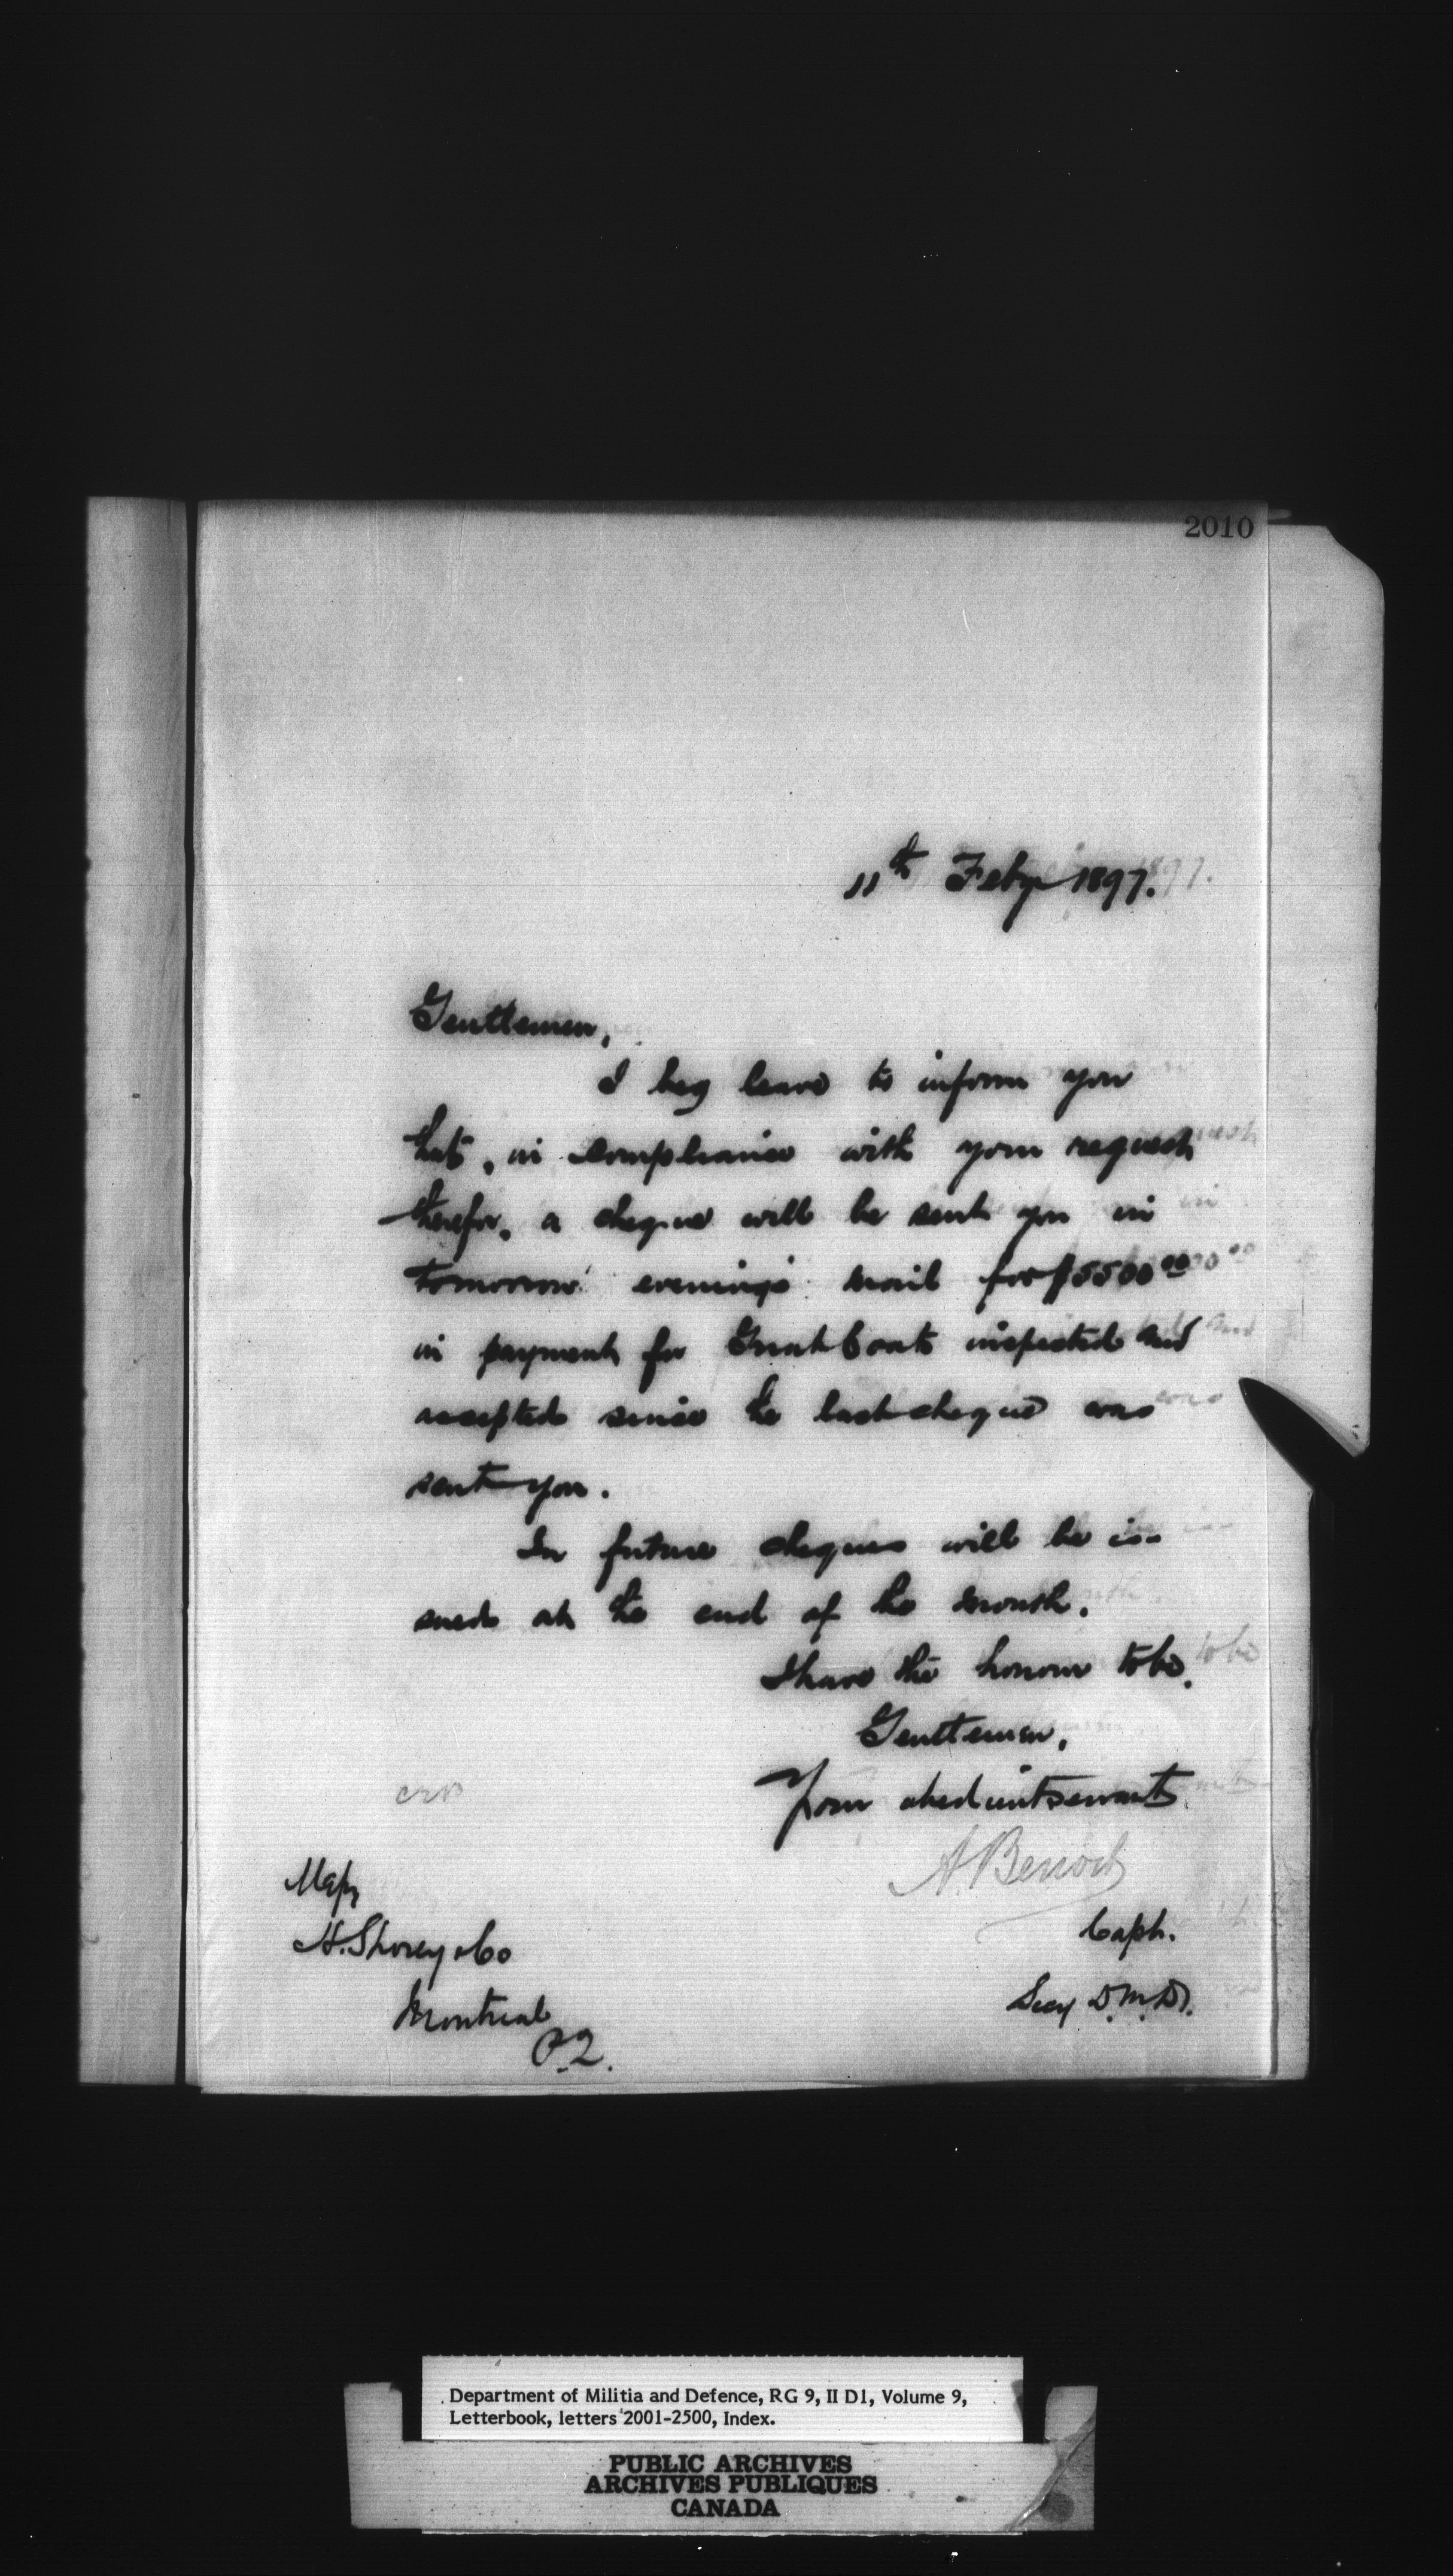 2010
11th Feby 1897.
Gentlemen,
I beg leave to inform you
that, in compliance with your request
therefor, a cheque will be sent you in
tomorrow evening's mail for $5500 00
in payment for Great Coats inspected and
accepted since the last cheque was
sent you.
In future cheques will be is-
sued at the end of the month.
I have the honour to be,
Gentlemen,
Your obedient servant
A. Benoit
Capt.
Secy D.M.D.
Messrs
H. Shorey & Co
Montreal
P.Q.
Department of Militia and Defence, RG 9, II D1, Volume 9,
Letterbook, letters 2001-2500, Index.
PUBLIC ARCHIVES
ARCHIVES PUBLIQUES
CANADA